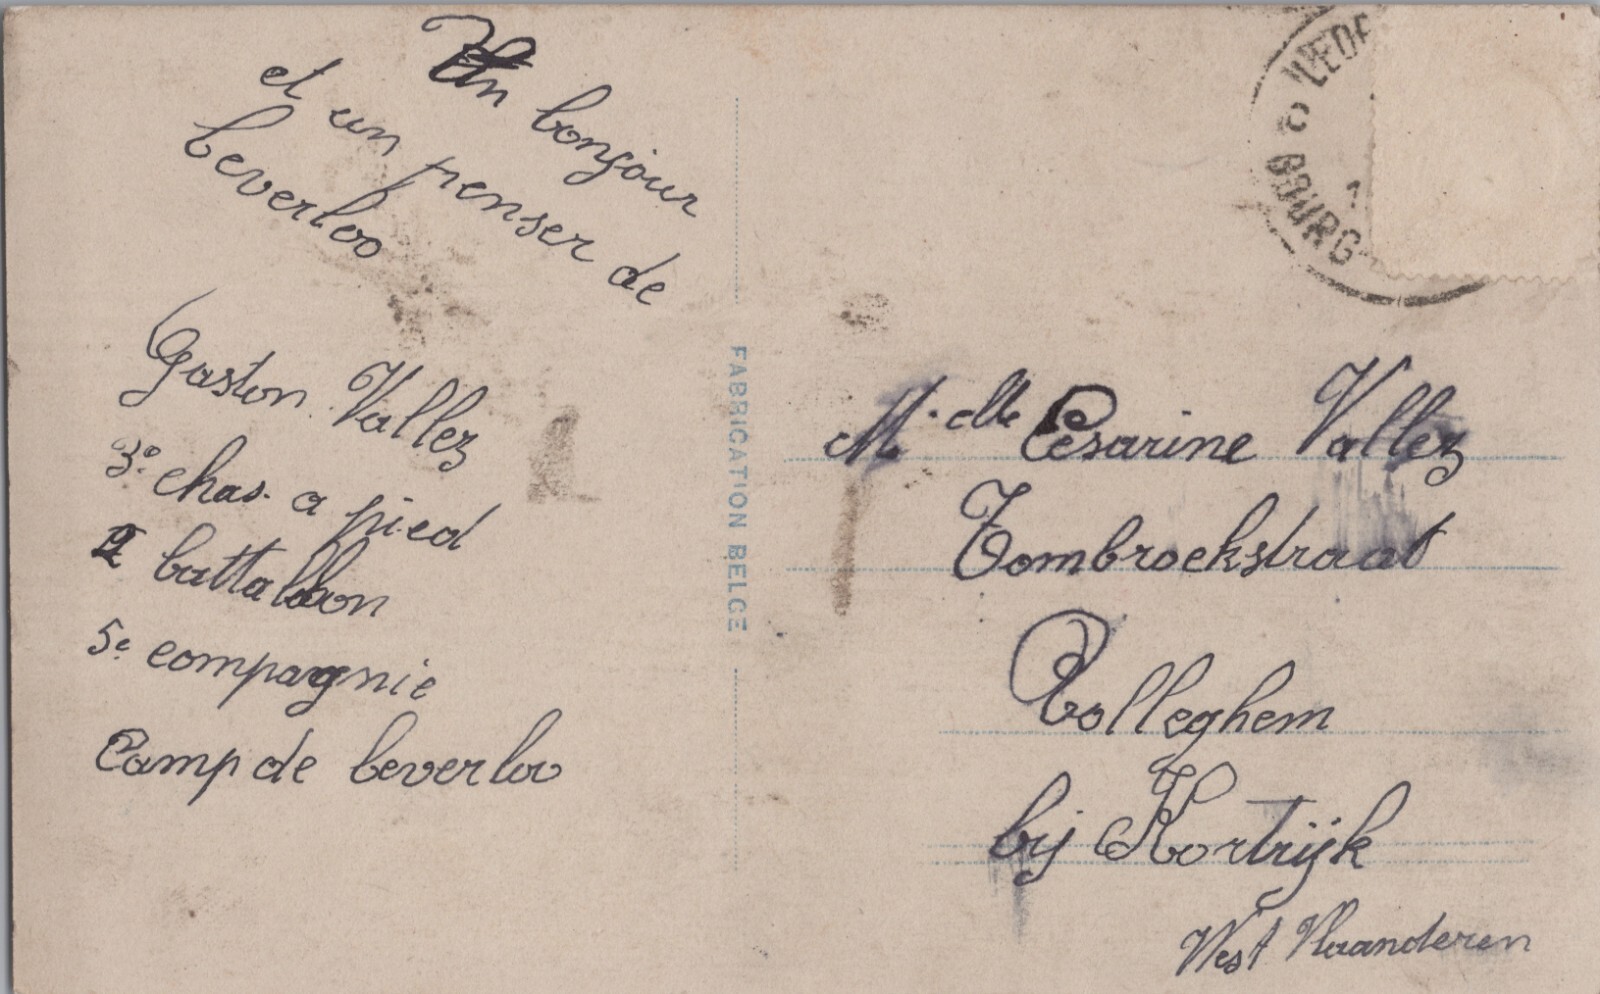 Un bonjour
et un penser de
beverloo
Gaston Vallez
3e chas. a pied
2 battalion
5e compagnie
Camp de beverloo
FABRICATION BELGE
BOURG
M.elle Cesarine Vallez
Tombroekstraat
Rolleghem
bij Kortrijk
West Vlaanderen